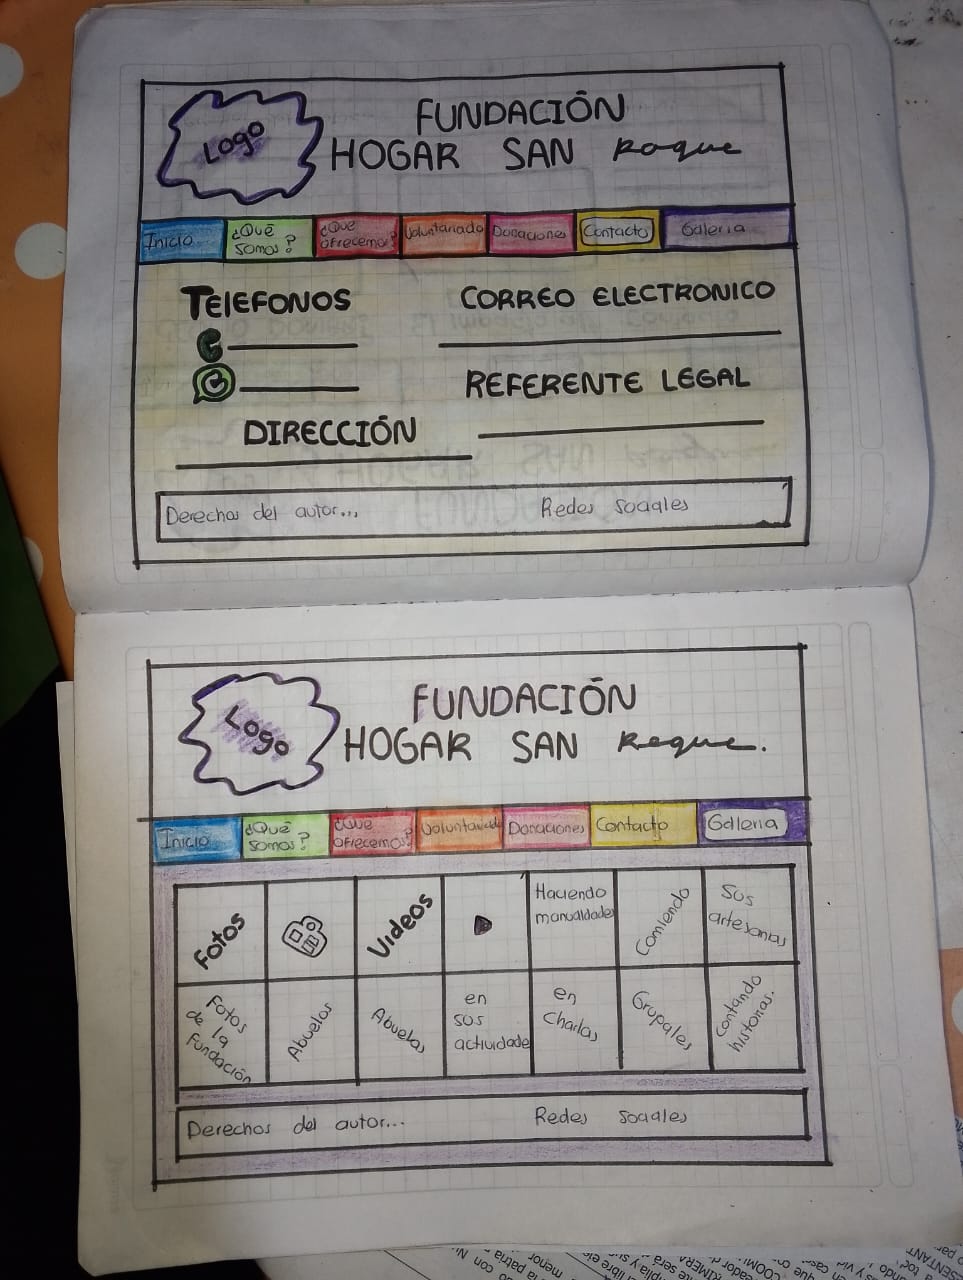 Logo
FUNDACIÓN
HOGAR SAN Roque
Inicio
¿Qué
somos?
¿Que
ofrecemos?
Voluntariado
Donaciones
Contacto
Galeria
TELEFONOS
CORREO ELECTRONICO
REFERENTE LEGAL
DIRECCIÓN
Derechos del autor...
Redes sociales
Logo
FUNDACIÓN
HOGAR SAN Roque.
Inicio
¿Qué
somos?
¿Que
ofrecemos?
Voluntariado
Donaciones
Contacto
Galeria
Fotos
Videos
Haciendo
manualidades
Comiendo
Sus
artesanias
Fotos
de la
Fundación
Abuelos
Abuelas
en
sus
actividades
en
charlas
Grupales
Contando
historias.
Derechos del autor...
Redes sociales